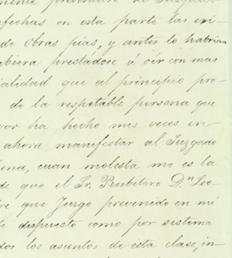 fechas en esta parte las exi
do obras pias, y antes lo habrian
biera prestádose á oir con mas
ialidad que al principio pro
de la respetable persona que
vor ha hecho mis veces en
ahora, manifestar al Juzgado
ena, cuan molesta me es la
de que el Sr. Presbítero Dn. Leo
re que Juzgo prevenido en mi
dispuesto como por sistema
dos los asuntos de esta clase, in